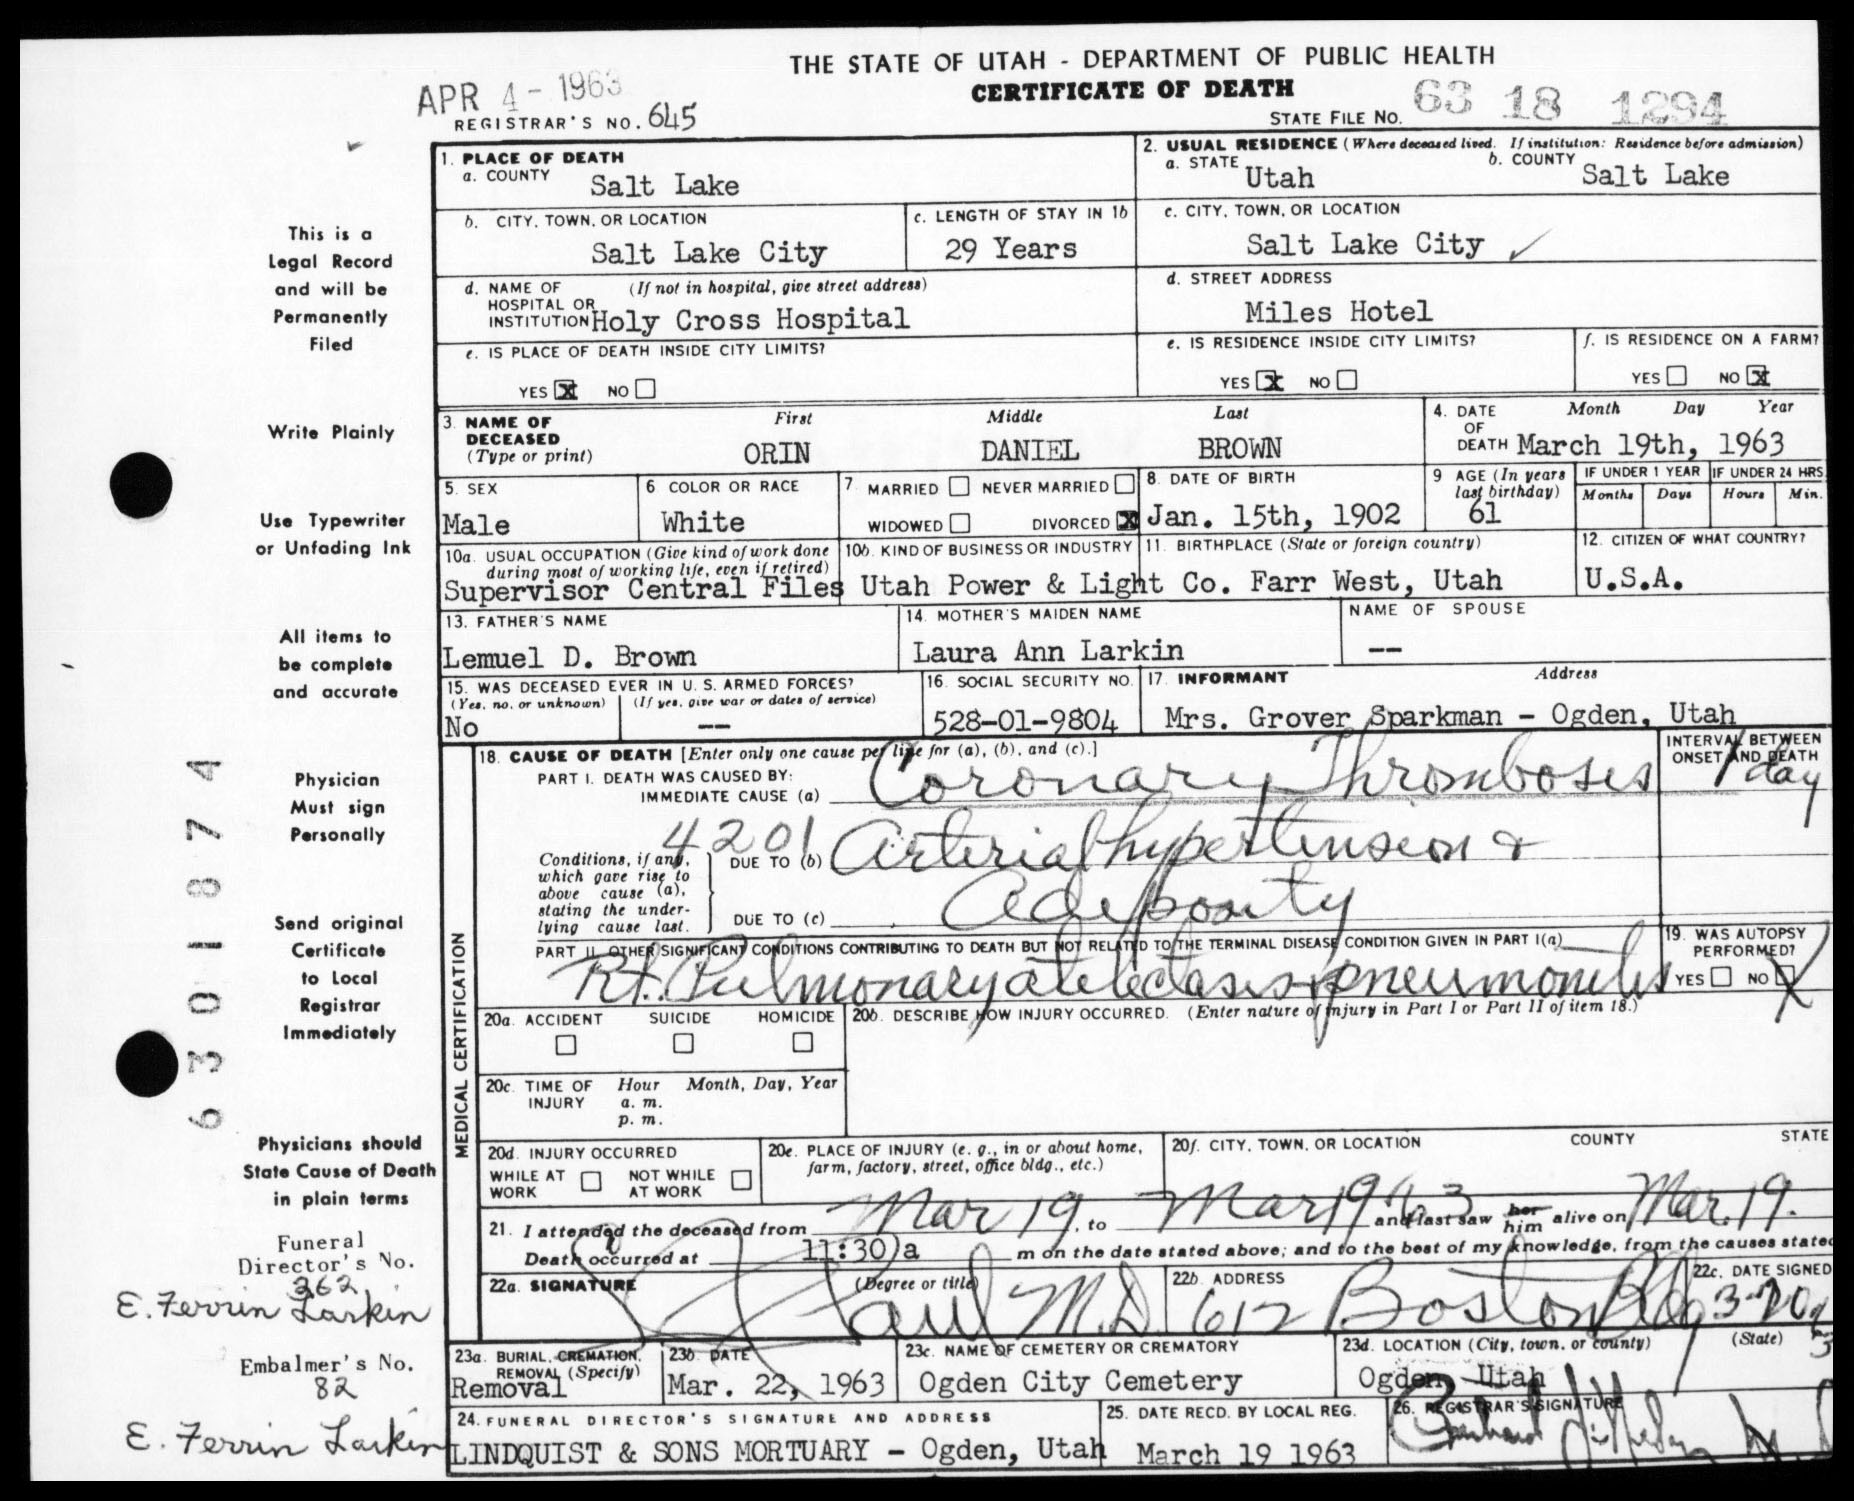 THE STATE OF UTAH - DEPARTMENT OF PUBLIC HEALTH
CERTIFICATE OF DEATH
APR 4 - 1963
REGISTRAR'S NO. 645
STATE FILE NO. 63 18 1294
This is a
Legal Record
and will be
Permanently
Filed
Write Plainly
Use Typewriter
or Unfading Ink
All items to
be complete
and accurate
Physician
Must sign
Personally
Send original
Certificate
to Local
Registrar
Immediately
Physicians should
State Cause of Death
in plain terms
Funeral
Director's No.
362
E. Ferrin Larkin
Embalmer's No.
82
E. Ferrin Larkin
6301874
1. PLACE OF DEATH
a. COUNTY Salt Lake
2. USUAL RESIDENCE (Where deceased lived. If institution: Residence before admission)
a. STATE Utah b. COUNTY Salt Lake
b. CITY, TOWN, OR LOCATION
Salt Lake City
c. LENGTH OF STAY IN 1b
29 Years
c. CITY, TOWN, OR LOCATION
Salt Lake City
d. NAME OF HOSPITAL OR INSTITUTION (If not in hospital, give street address)
Holy Cross Hospital
d. STREET ADDRESS
Miles Hotel
e. IS PLACE OF DEATH INSIDE CITY LIMITS?
YES X NO
e. IS RESIDENCE INSIDE CITY LIMITS?
YES X NO
f. IS RESIDENCE ON A FARM?
YES NO X
3. NAME OF DECEASED (Type or print)
First Middle Last
ORIN DANIEL BROWN
4. DATE OF DEATH Month Day Year
March 19th, 1963
5. SEX
Male
6 COLOR OR RACE
White
7. MARRIED NEVER MARRIED
WIDOWED DIVORCED X
8. DATE OF BIRTH
Jan. 15th, 1902
9 AGE (In years last birthday)
61
IF UNDER 1 YEAR
Months Days
IF UNDER 24 HRS.
Hours Min.
10a. USUAL OCCUPATION (Give kind of work done during most of working life, even if retired)
Supervisor Central Files
10b. KIND OF BUSINESS OR INDUSTRY
Utah Power & Light Co.
11. BIRTHPLACE (State or foreign country)
Farr West, Utah
12. CITIZEN OF WHAT COUNTRY?
U.S.A.
13. FATHER'S NAME
Lemuel D. Brown
14. MOTHER'S MAIDEN NAME
Laura Ann Larkin
NAME OF SPOUSE
--
15. WAS DECEASED EVER IN U. S. ARMED FORCES?
(Yes, no, or unknown) (If yes, give war or dates of service)
No --
16. SOCIAL SECURITY NO.
528-01-9804
17. INFORMANT Address
Mrs. Grover Sparkman - Ogden, Utah
MEDICAL CERTIFICATION
18. CAUSE OF DEATH [Enter only one cause per line for (a), (b), and (c).]
PART I. DEATH WAS CAUSED BY:
IMMEDIATE CAUSE (a) Coronary Thrombosis
INTERVAL BETWEEN ONSET AND DEATH
1 day
4201
Conditions, if any, which gave rise to above cause (a), stating the underlying cause last.
DUE TO (b) Arterial hypertension &
DUE TO (c) Adiposity
PART II. OTHER SIGNIFICANT CONDITIONS CONTRIBUTING TO DEATH BUT NOT RELATED TO THE TERMINAL DISEASE CONDITION GIVEN IN PART I(a)
Rt. Pulmonary atelectasis & pneumonitis
19. WAS AUTOPSY PERFORMED?
YES NO X
20a. ACCIDENT SUICIDE HOMICIDE
20b. DESCRIBE HOW INJURY OCCURRED. (Enter nature of injury in Part I or Part II of item 18.)
20c. TIME OF INJURY Hour Month, Day, Year
a. m.
p. m.
20d. INJURY OCCURRED
WHILE AT WORK NOT WHILE AT WORK
20e. PLACE OF INJURY (e. g., in or about home, farm, factory, street, office bldg., etc.)
20f. CITY, TOWN, OR LOCATION COUNTY STATE
21. I attended the deceased from Mar 19, to Mar 19 63 and last saw her him alive on Mar. 19.
Death occurred at 11:30 a m on the date stated above; and to the best of my knowledge, from the causes stated
22a. SIGNATURE (Degree or title)
Paul M.D.
22b. ADDRESS
612 Boston Bldg
22c. DATE SIGNED
3-20-63
23a. BURIAL, CREMATION, REMOVAL (Specify)
Removal
23b. DATE
Mar. 22, 1963
23c. NAME OF CEMETERY OR CREMATORY
Ogden City Cemetery
23d. LOCATION (City, town, or county) (State)
Ogden, Utah
24. FUNERAL DIRECTOR'S SIGNATURE AND ADDRESS
LINDQUIST & SONS MORTUARY - Ogden, Utah
25. DATE RECD. BY LOCAL REG.
March 19 1963
26. REGISTRAR'S SIGNATURE